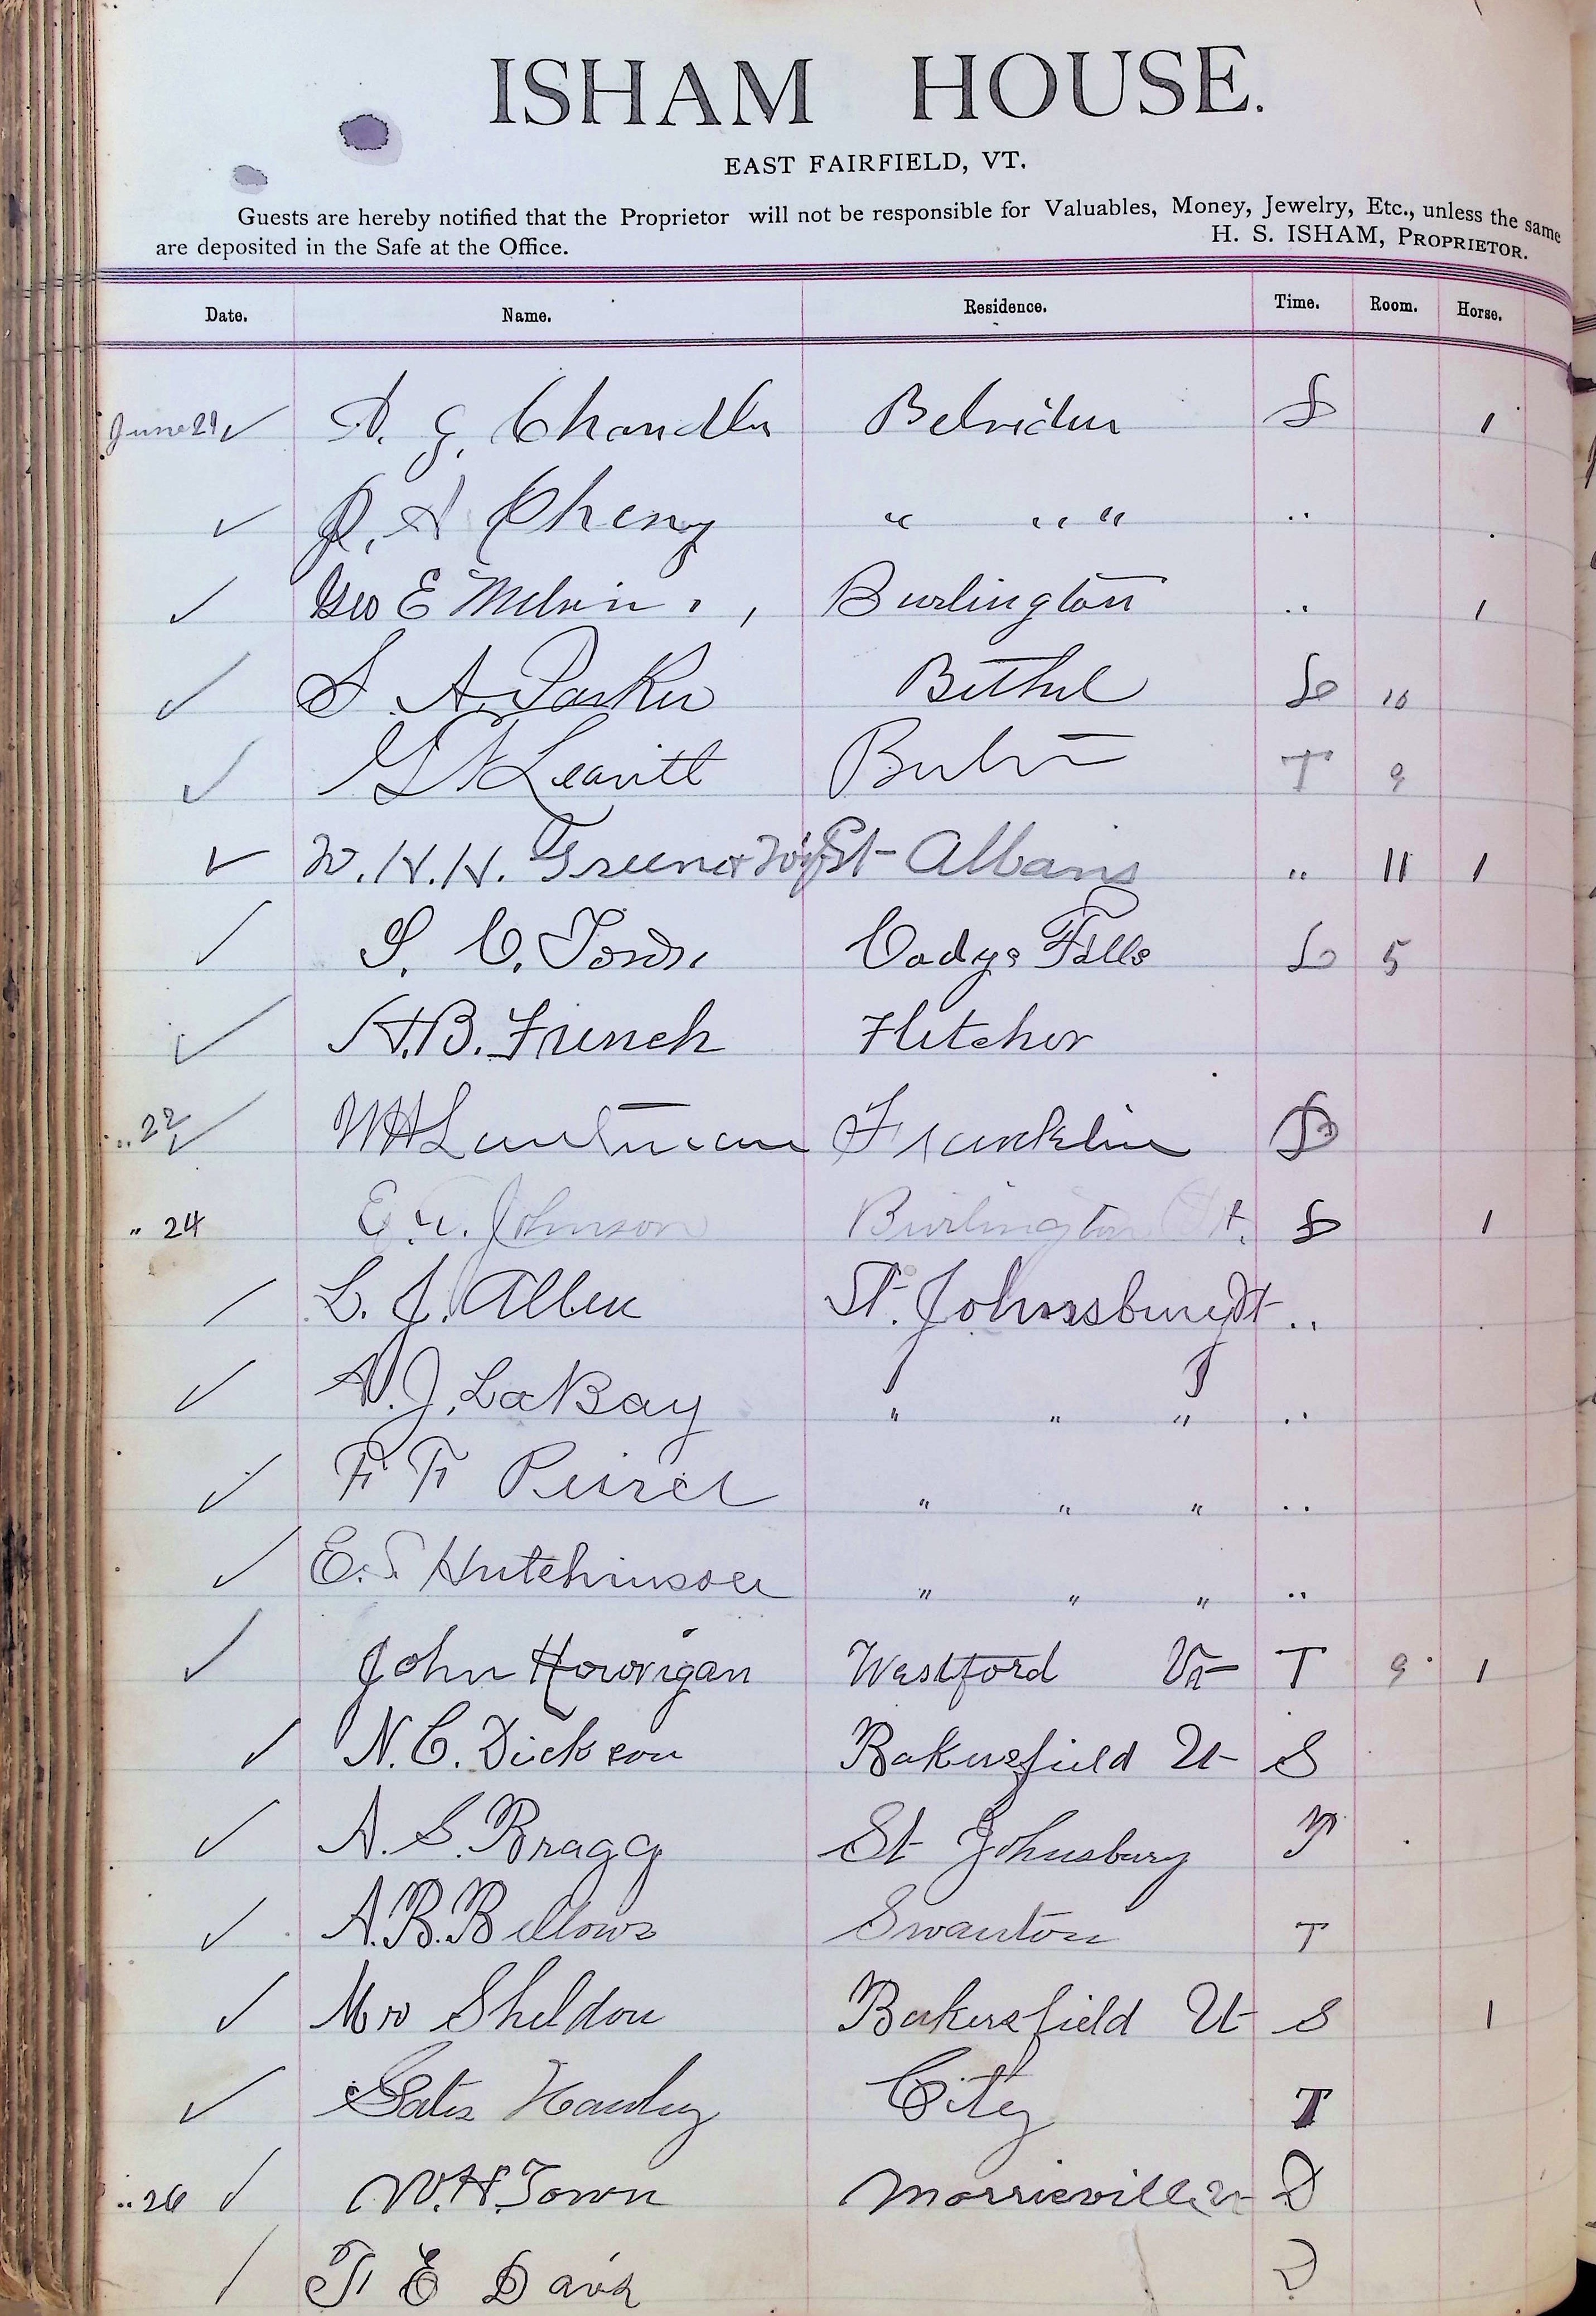 ISHAM HOUSE.
EAST FAIRFIELD, VT.
Guests are hereby notified that the Proprietor will not be responsible for Valuables, Money, Jewelry, Etc., unless the same
are deposited in the Safe at the Office. H. S. ISHAM, PROPRIETOR.
Date. Name. Residence. Time. Room. Horse.
June 21 ✓ A. G. Chandler Belvidere 1
✓ A Cheny " " " "
✓ Geo E Melvin Burlington " 1
✓ S. A. Parker Bethel 10
✓ Leavitt T 9
✓ W. H. H. Green & Wife St Albans " 11 1
✓ S. C. Town Cadys Falls 5
✓ H. B. French Fletcher
" 22 ✓ Franklin D
" 24 E. Johnson Burlington Vt. 1
L. J. Allen St. Johnsbury Vt "
✓ A. J. LaBay " " " "
✓ F. F. Peirce " " " "
✓ E. S. Hutchinson " " " "
✓ John Howrigan Westford Vt T 9 1
✓ N. C. Dickson Bakersfield Vt S
✓ A. S. Bragg St Johnsbury
✓ A. B. Bellows Swanton T
✓ Mr Sheldon Bakersfield Vt S 1
✓ Gates Hawley City T
" 26 ✓ W. H. Town Morrisville Vt D
F. E Davis D